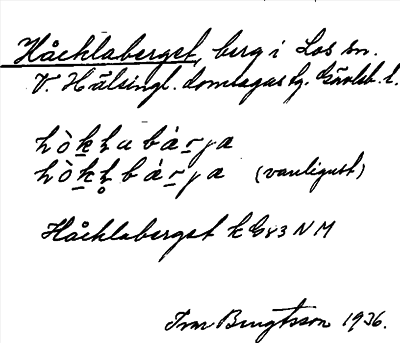 Håcklaberget, berg i Los sn.
V. Hälsingl. domsagas tg. Gävleb. l.
hò̀kḷubárja
hòkḷbárja (vanligast)
Håcklaberget k G83 NM
Ivar Bengtsson 1936.